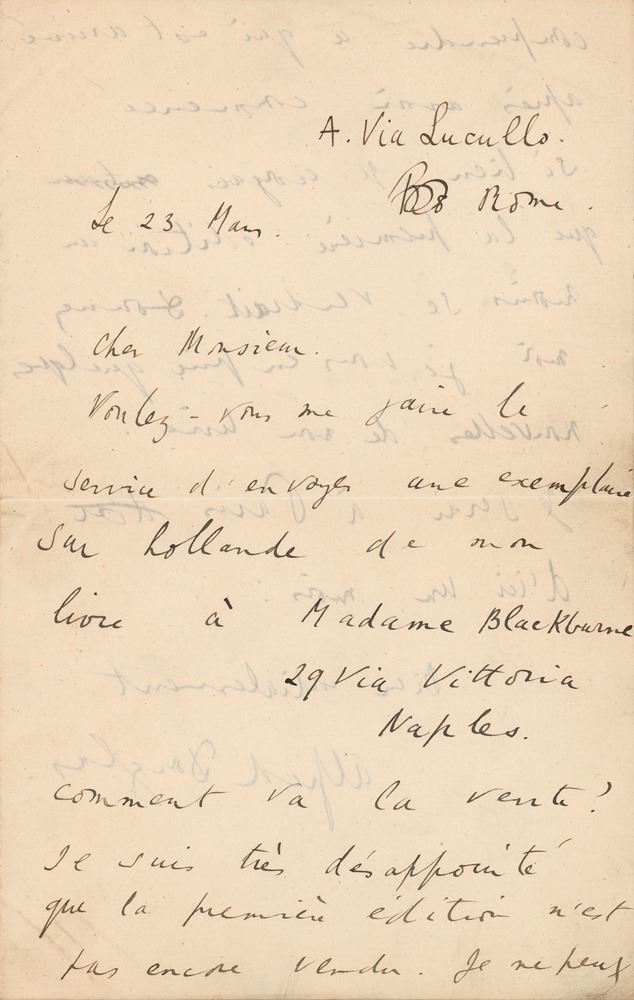 A. Via Lucullo.
Rome.
Le 23 Mars.
Cher Monsieur.
Voulez-vous me faire le
service d'envoyer une exemplaire
sur hollande de mon
livre à Madame Blackburne
29 Via Vittoria
Naples.
comment va la vente?
Je suis très désappointé
que la première édition n'est
pas encore vendu. Je ne peux